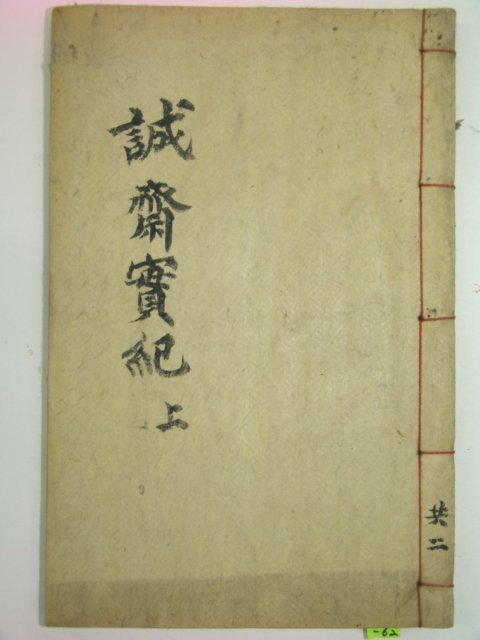 誠齋實紀 上
共二
-62